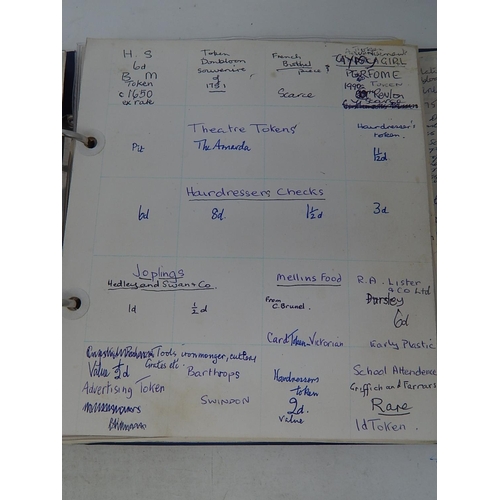 H. S
6d
B M
Token
c 1650
ex rare
Token
Doubloon
souvenire
of
1751
French
Brothel
piece
Scarce
GIRL
PERFOME
1990s
Revlon
Theatre Tokens
Pit
The Amarda
Hairdresser's
token.
1½d
Hairdressers Checks
6d
8d.
1½d
3d
Joplings
Hedley and Swan & Co.
1d
½d
Mellins Food
From
C. Brunel.
Card Token - Victorian
R.A. Lister
& CO Ltd
Dursley
6d
Early Plastic
Value ½d
Advertising Token
Tools, ironmonger, cutlery
Grates etc.
Barthrops
SWINDON
Hairdressers
Token
2d.
Value
School Attendence
Griffith and Farrars
Rare
1d Token.